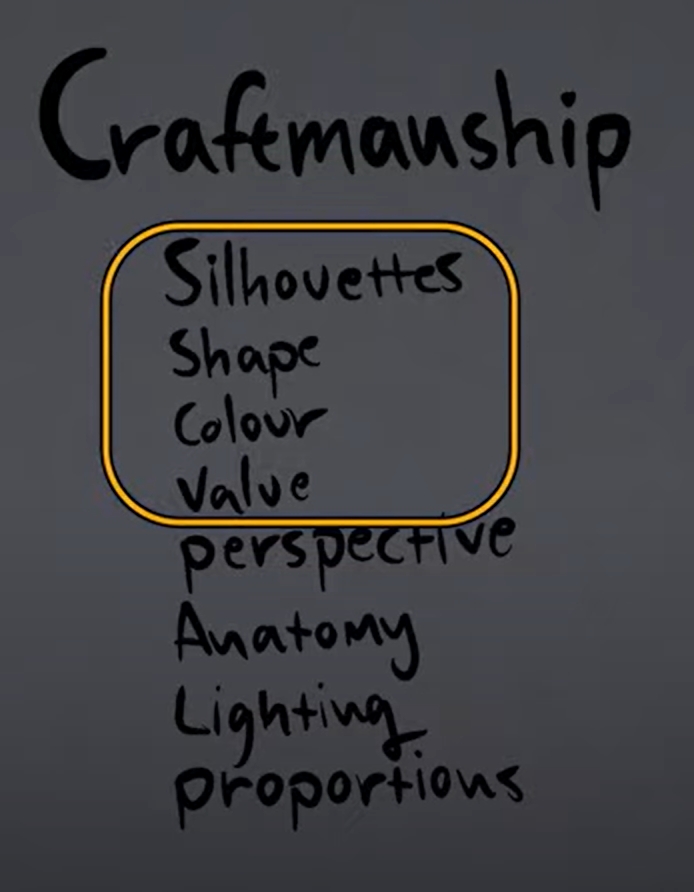 Craftmanship
Silhouettes
Shape
Colour
Value
perspective
Anatomy
Lighting
proportions